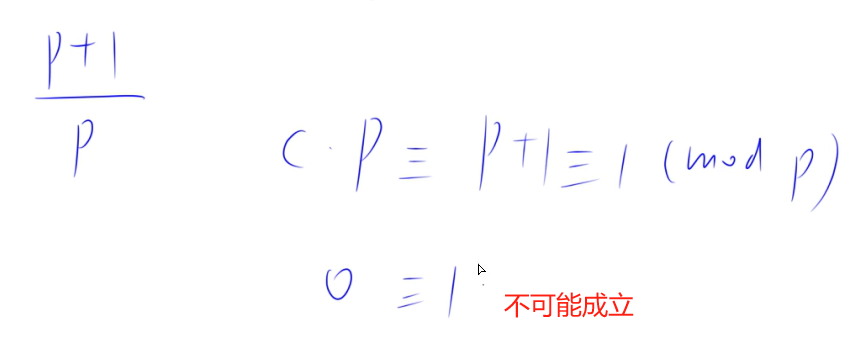 p+1
p
c · p ≡ p+1 ≡ 1 (mod p)
0 ≡ 1
不可能成立